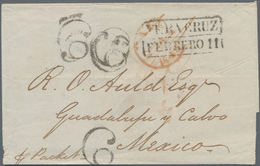 VERACRUZ
FEBRERO 11
6
6
R. O. Auld Esqr
Guadalupe y Calvo
Mexico
6